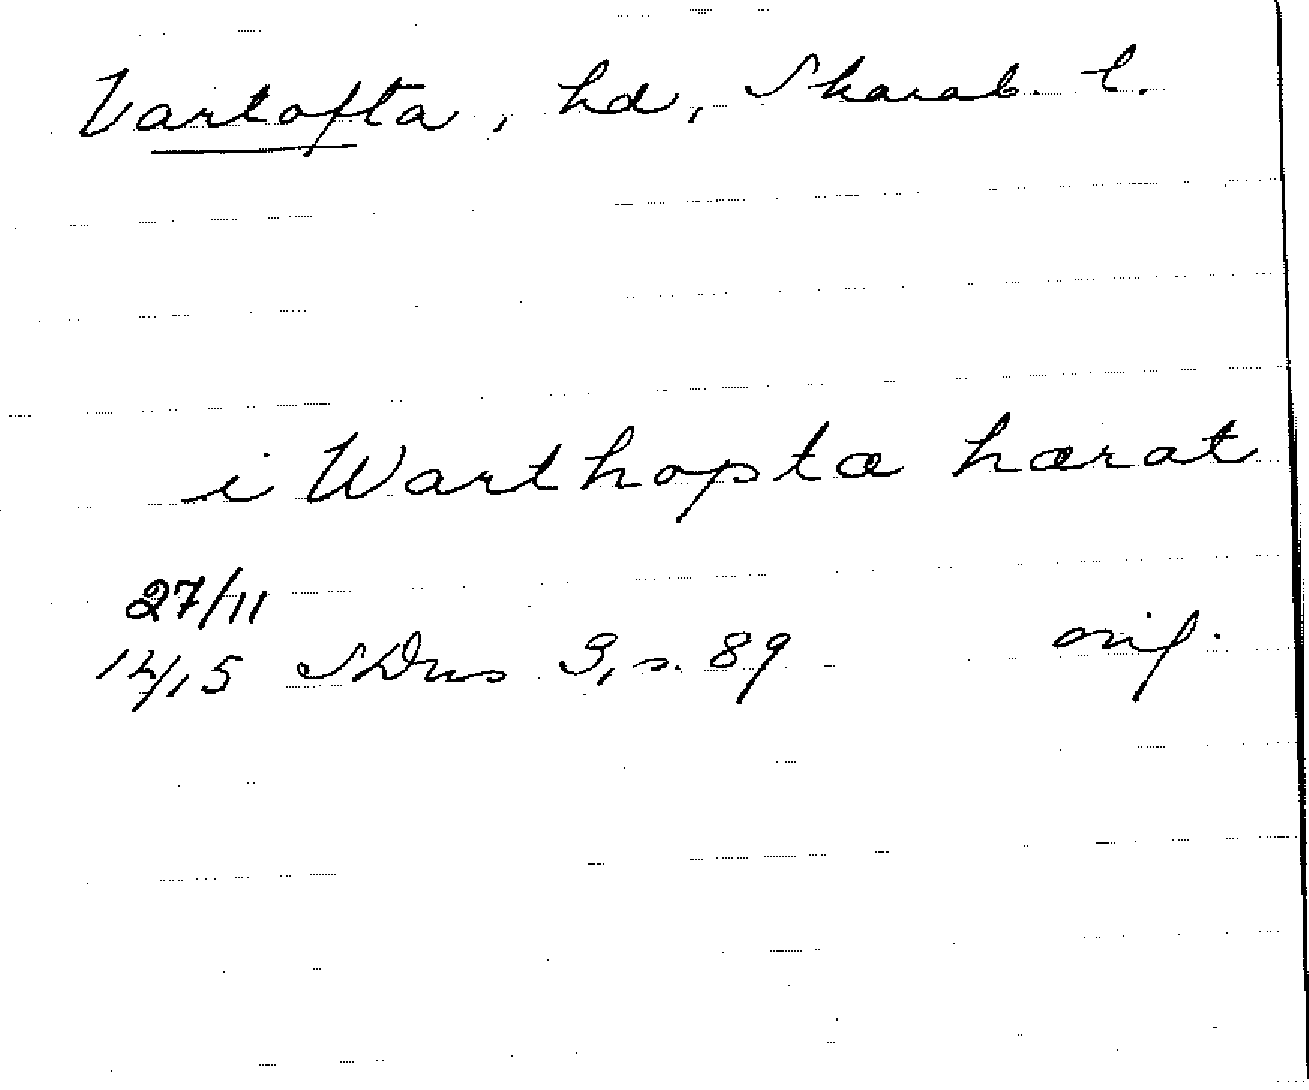 Vartofta, hd, Skarab. l.
i Warthopta hærat
27/11
1415 SDns 3, s. 89 orig.